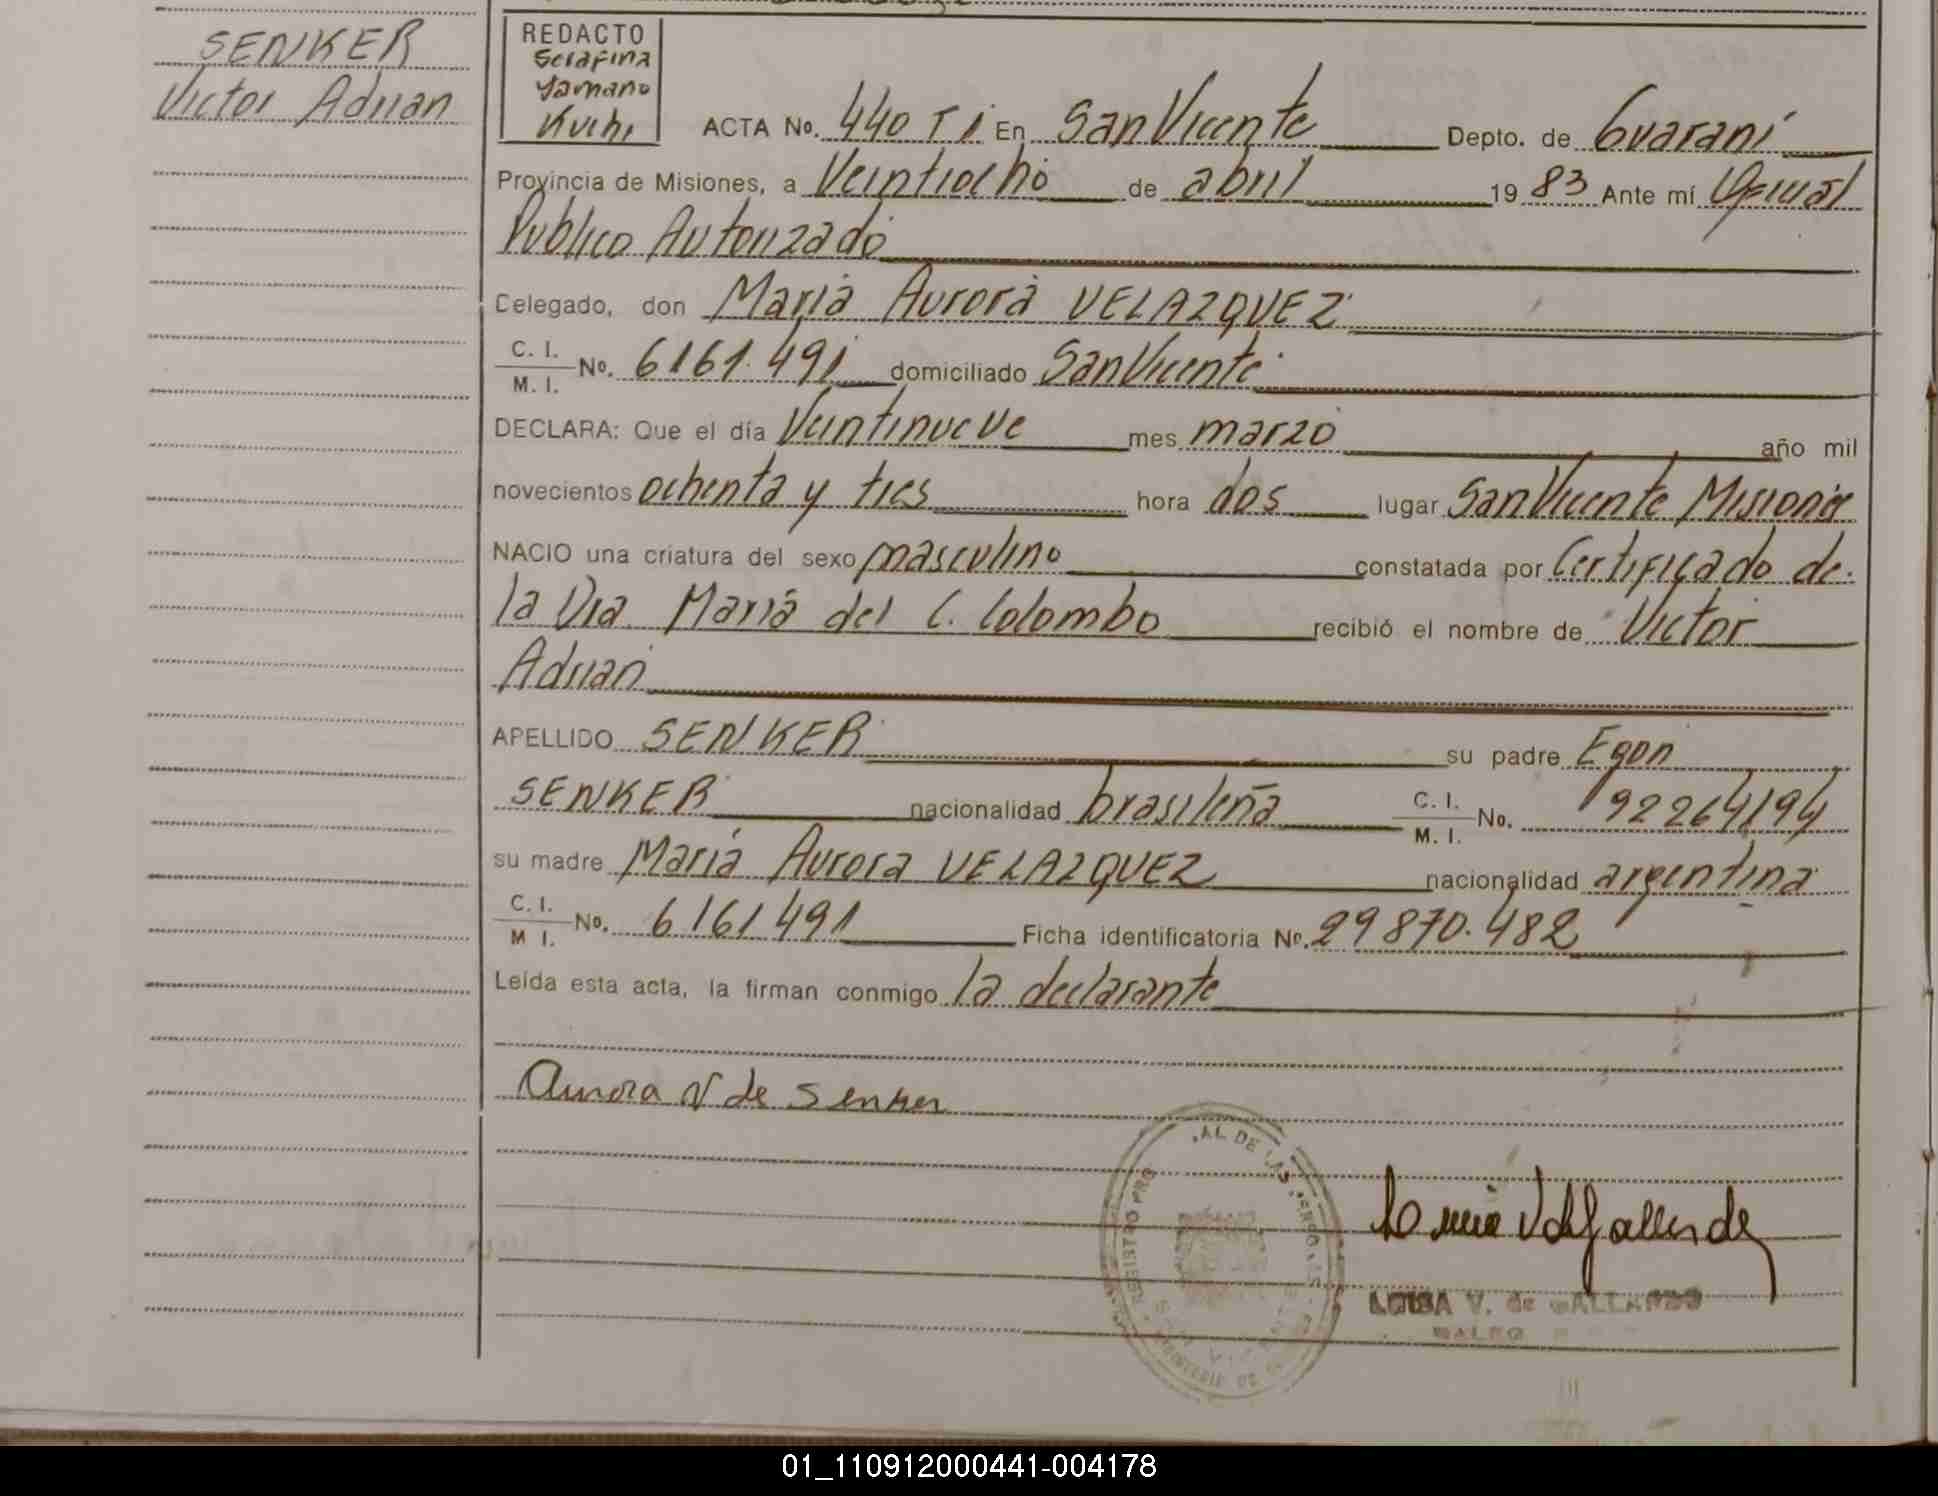 SENKER
Victor Adrian
REDACTO
Serafina
Yamano
Kuchi
ACTA No. 440 T I En San Vicente Depto. de Guaraní
Provincia de Misiones, a Veintiocho de abril 1983 Ante mí Oficial
Publico Autorizado
Delegado, don María Aurora VELAZQUEZ
C. I.
M. I. No. 6161.491 domiciliado San Vicente
DECLARA: Que el día Veintinueve mes marzo año mil
novecientos ochenta y tres hora dos lugar San Vicente Misiones
NACIO una criatura del sexo masculino constatada por Certificado de
la Dra. María del C. Colombo recibió el nombre de Victor
Adrian
APELLIDO SENKER su padre Egon
SENKER nacionalidad brasileña C. I.
M. I. No. 92264194
su madre María Aurora VELAZQUEZ nacionalidad argentina
C. I.
M I. No. 6161491 Ficha identificatoria No. 29870.482
Leída esta acta, la firman conmigo la declarante
Aurora V de Senker
REGISTRO PRO AL DE LAS
LUISA V. de GALLARDO
01_110912000441-004178